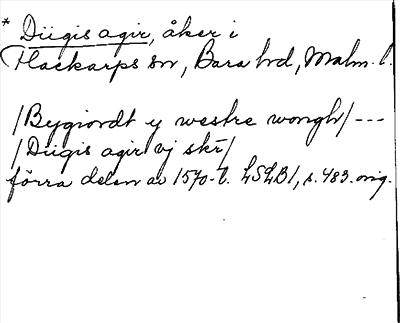 * Diigis agir, åker i
Flackarps sn, Bara hd, Malm. l.
/Bygiordt y westre wongh/ ---
/Diigis agir vj skr/
förra delen av 1570-t. LSLB1, s. 483. orig.